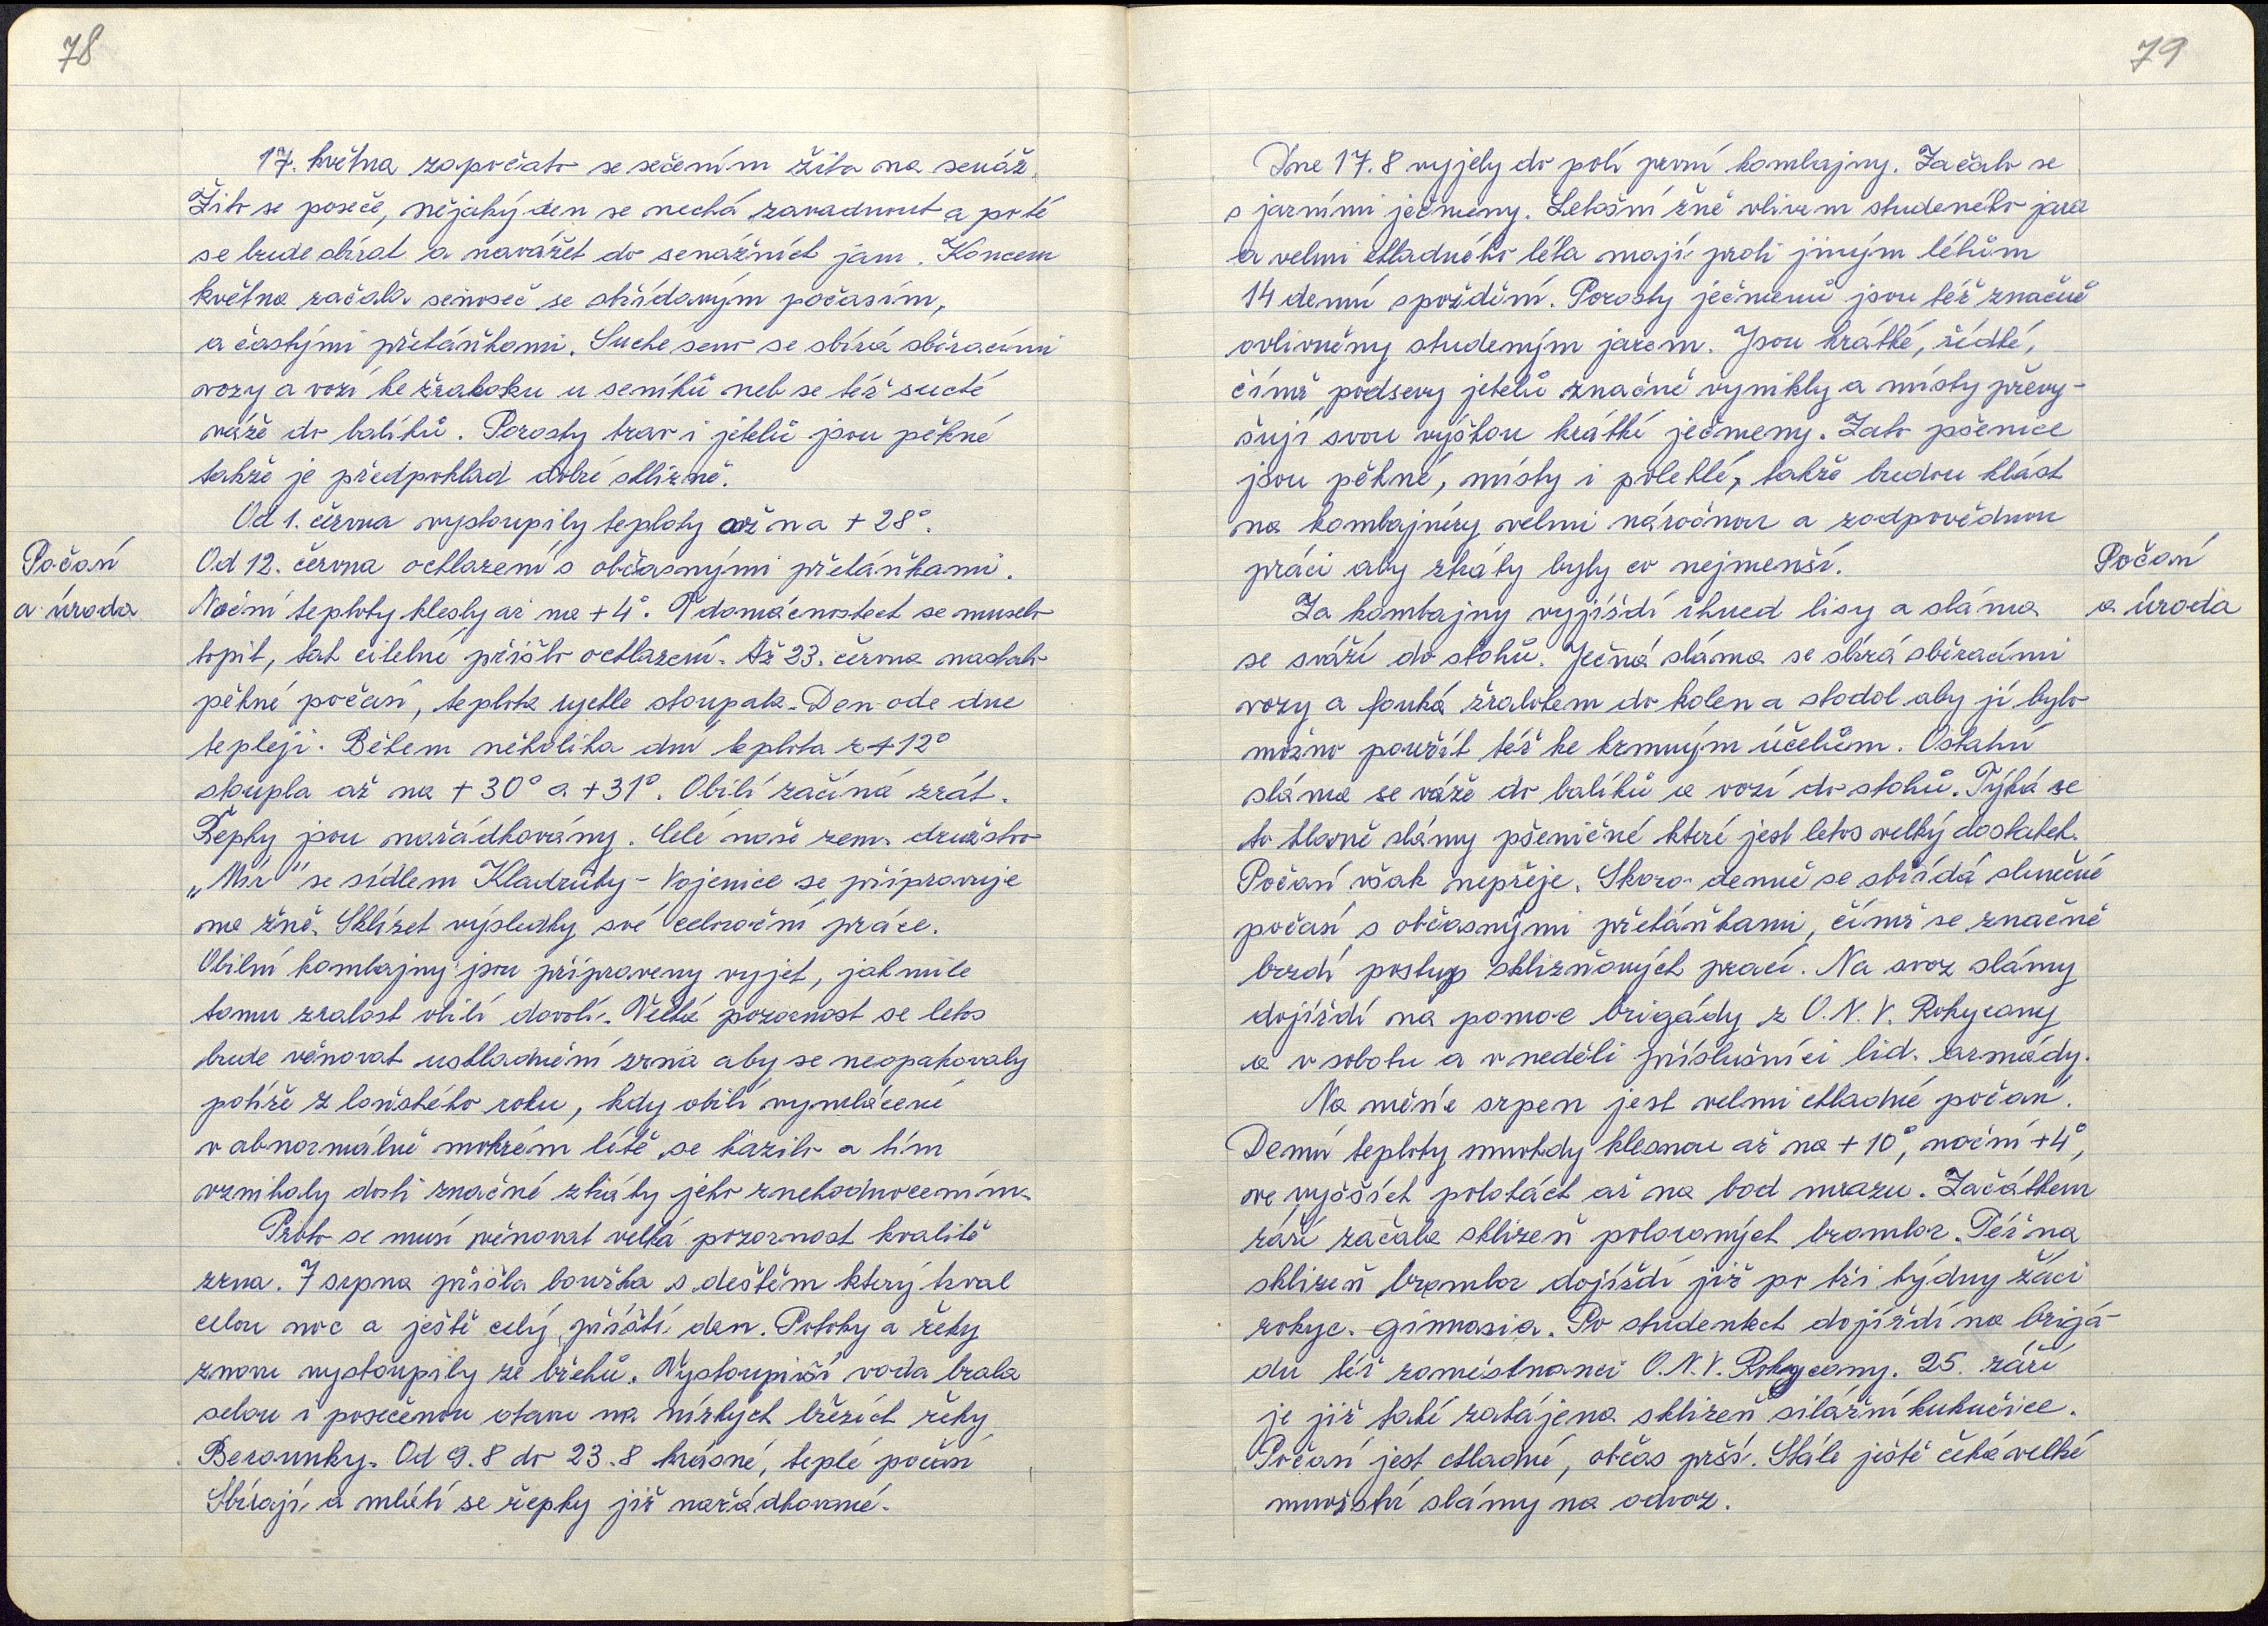 78
17. května započato se sečením žita na senáž.
Žito se poseče, nějaký den se nechá zavadnout a poté
se bude sbírat a navážet do senážních jam. Koncem
května začala senoseč se střídavým počasím,
a častými přeháňkami. Suché seno se sbírá sběracími
vozy a vozí ke žraloku u seníků neb se též suché
váže do balíků. Porosty trav i jetelů jsou pěkné
takže je předpoklad dobré sklizně.
Od 1. června vystoupily teploty až na + 28°.
Počasí
a úroda
Od 12. června ochlazení s občasnými přeháňkami.
Noční teploty klesly až na + 4°. V domácnostech se muselo
topit, tak citelné přišlo ochlazení. Až 23. června nastalo
pěkné počasí, teplota rychle stoupala. Den ode dne
tepleji. Během několika dní teplota z + 12°
stoupla až na + 30° a + 31°. Obilí začíná zrát.
Řepky jsou nařádkovány. Celé naše zem. družstvo
„Mír" se sídlem Kladruby - Vojenice se připravuje
na žně. Sklízet výsledky své celoroční práce.
Obilní kombajny jsou připraveny vyjet, jakmile
tomu zralost obilí dovolí. Velká pozornost se letos
bude věnovat uskladnění zrna aby se neopakovaly
potíže z loňského roku, kdy obilí vymlácené
v abnormálně mokrém létě se kazilo a tím
vznikaly dosti značné ztráty jeho znehodnocením.
Proto se musí věnovat velká pozornost kvalitě
zrna. 7 srpna přišla bouřka s deštěm který trval
celou noc a ještě celý příští den. Potoky a řeky
znovu vystoupily ze břehů. Vystoupivší voda brala
sebou i posečenou otavu na nízkých březích řeky
Berounky. Od 9. 8 do 23. 8 krásné, teplé počasí
Sbírají a mlátí se řepky již nařádkované.
79
Dne 17. 8 vyjely do polí první kombajny. Začalo se
s jarními ječmeny. Letošní žně vlivem studeného jara
a velmi chladného léta mají proti jiným létům
14 denní spoždění. Porosty ječmenů jsou též značně
ovlivněny studeným jarem. Jsou krátké, řídké,
čímž podsevy jetelů značně vynikly a místy převy-
šují svou výškou krátké ječmeny. Zato pšenice
jsou pěkné, místy i polehlé, takže budou klást
na kombajnéry velmi náročnou a zodpovědnou
práci aby ztráty byly co nejmenší.
Počasí
a úroda
Za kombajny vyjíždí ihned lisy a sláma
se sváží do stohů. Ječná sláma se sbírá sběracími
vozy a fouká žralokem do kolen a stodol aby jí bylo
možno použít též ke krmným účelům. Ostatní
sláma se váže do balíků a vozí do stohů. Týká se
to hlavně slámy pšeničné které jest letos velký dostatek.
Počasí však nepřeje. Skoro denně se střídá slunečné
počasí s občasnými přeháňkami, čímž se značně
brzdí postup sklizňových prací. Na svoz slámy
dojíždí na pomoc brigády z O. N. V. Rokycany
a v sobotu a v neděli příslušníci lid. armády.
Na měsíc srpen jest velmi chladné počasí.
Denní teploty mnohdy klesnou až na + 10°, noční + 4°,
ve vyšších polohách až na bod mrazu. Začátkem
září začala sklizeň poloraných brambor. Též na
sklizeň brambor dojíždí již po tři týdny žáci
rokyc. gimnasia. Po studentech dojíždí na brigá-
du též zaměstnanci O. N. V. Rokycany. 25. září
je již také zahájena sklizeň silážní kukuřice.
Počasí jest chladné, občas prší. Stále ještě čeká velké
množství slámy na odvoz.